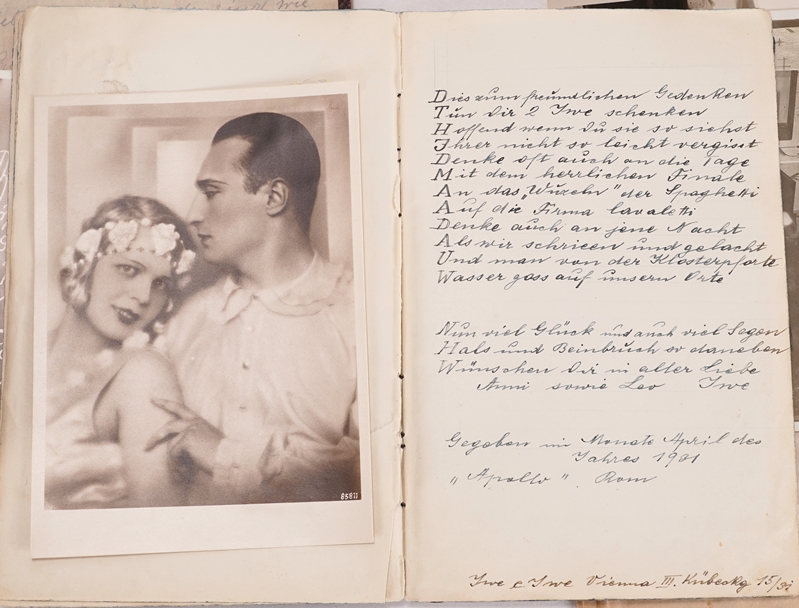 85811
Dies zum freundlichen Gedenken
Tun Dir 2 Iwe schenken
Hoffend wenn Du sie so siehst
Ihrer nicht so leicht vergisst
Denke oft auch an die Tage
Mit dem herrlichen Finale
An das „Wuzeln" der Spaghetti
Auf die Firma Cavaletti
Denke auch an jene Nacht
Als wir schrieen und gelacht
Und man von der Klosterpforte
Wasser goss auf unsern Orte
Nun viel Glück und auch viel Segen
Hals und Beinbruch so daneben
Wünschen Dir in aller Liebe
Anni sowie Leo Iwe
Gegeben im Monate April des
Jahres 1931
„Apollo" Rom
Iwe & Iwe Vienna III. Kübeckg 15/31